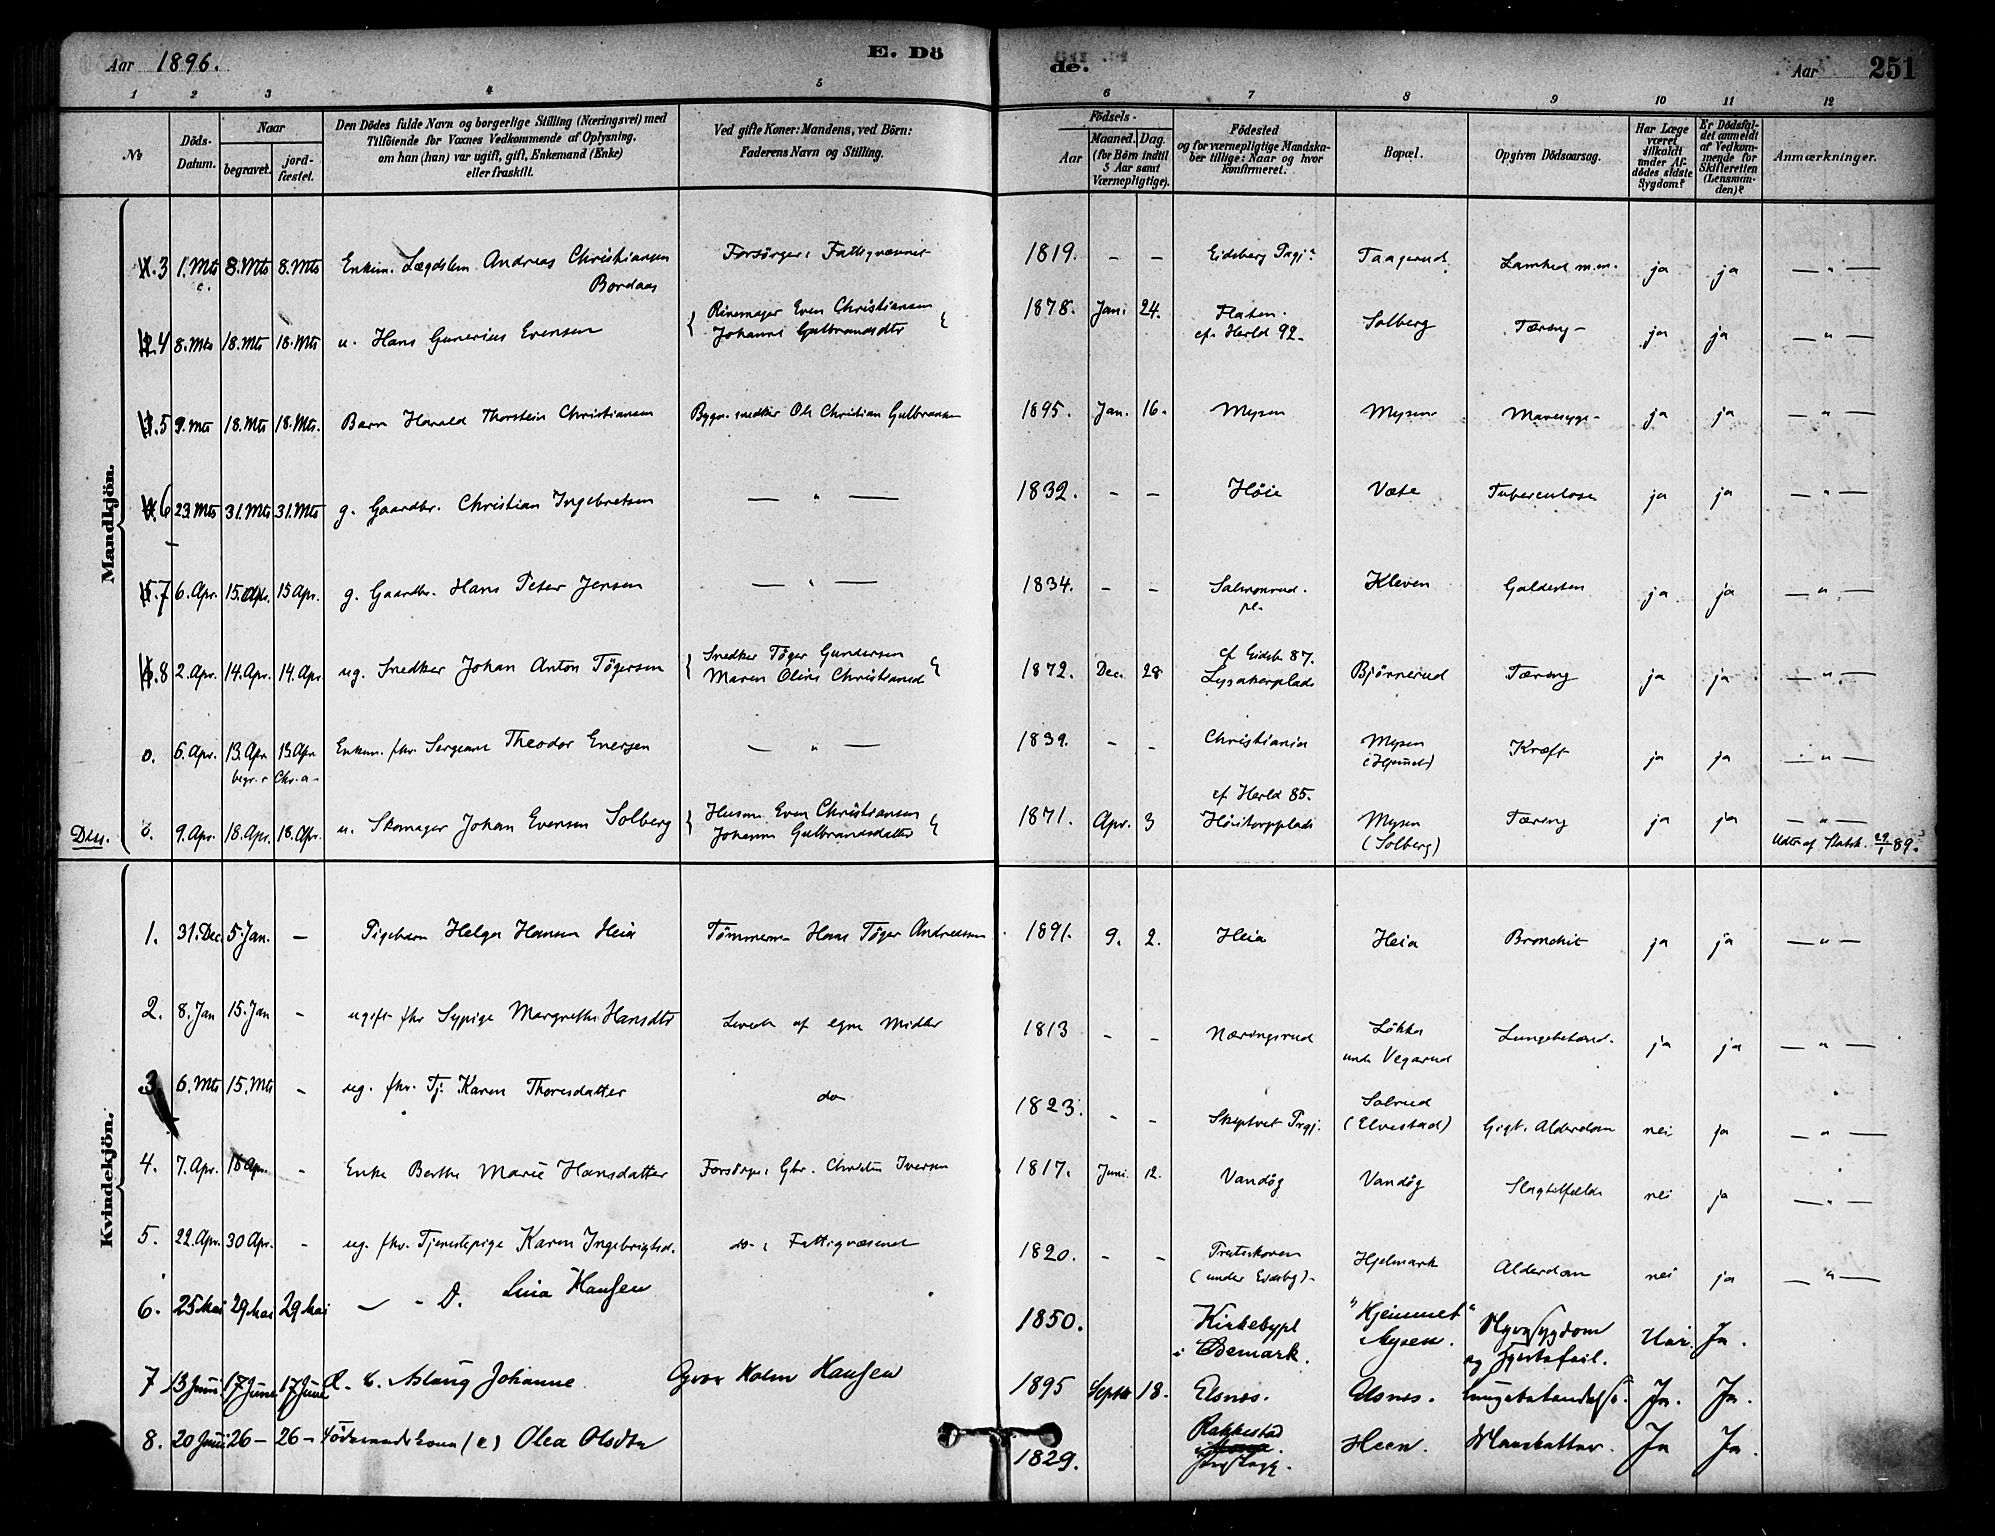 Aar 1896.
E. Dö
de.
Aar 251
1 2 3 4 5 6 7 8 9 10 11 12
No
Döds-Datum.
Naar
begravet.
jord-fæstet.
Den Dödes fulde Navn og borgerlige Stilling (Næringsvei) med
Tilföiende for Voxnes Vedkommende af Oplysning,
om han (hun) var ugift, gift, Enkemand (Enke)
eller fraskilt.
Ved gifte Koner: Mandens, ved Börn:
Faderens Navn og Stilling.
Födsels-
Aar
Maaned. Dag.
(for Börn indtil
5 Aar samt
Værnepligtige).
Födested
og for værnepligtige Mandska-
ber tillige: Naar og hvor
konfirmeret.
Bopæl.
Opgiven Dödsaarsag.
Har Læge
været
tilkaldt
under Af-
dödes sidste
Sygdom?
Er Dödsfal-
det anmeldt
af Vedkom-
mende for
Skifteretten
(Lensman-
den)?
Anmærkninger.
Mandkjön.
3 1. Mts 8. Mts 8. Mts Enkem. Lægdslem Andreas Christiansen Forsörger: Fattigvæsenet 1819. - - Eidsberg Prgj. Taagerud Lamhed m.m. ja ja — " —
Bordaas
4 8. Mts 18. Mts 18. Mts u. Hans Gunerius Evensen { Rivemager Even Christiansen 1878. Jani 24. Flaten. Solberg Tæring - ja ja — " —
Johanne Gulbrandsdtr { cf. Herld 92.
5 9. Mts 18. Mts 18. Mts. Barn Harald Thorstein Christiansen Bygn. snedker Ole Christian Gulbransen 1895. Jan. 16. Mysen Mysen Mavesyge - ja ja — " —
6 23. Mts 31. Mts 31. Mts g. Gaardbr. Christian Ingebretsen — " — 1832. - - Höie Væte Tuberculose ja ja — " —
7 6. Apr. 15. Apr. 15 Apr. g. Gaardbr. Hans Peter Jensen — " — 1834. - - Salmonrud. Kleven Galdesten ja ja — " —
pl.
8 2. Apr. 14. Apr. 14. Apr ug. Snedker Johan Anton Tögersen { Snedker Töger Gundersen 1872. Dec. 28 cf Eidsb 87. Bjørnerud Tæring ja ja — " —
Maren Oline Christiansd { Lysakerplads
0. 6. Apr. 13. Apr 13. Apr Enkem. fhv. Sergeant Theodor Eversen — " — 1839. - - Christiania Mysen Kræft ja ja — " —
begr. Chr.a (Hjemmet)
Diss. 0. 9. Apr. 18. Apr. 18. Apr. u. Skomager Johan Evensen Solberg { Husm. Even Christiansen 1871. Apr. 3 cf Herld 85. Mysen Tæring ja ja — " —
Johanne Gulbrandsdatter { Höitorpplads (Solberg) Udtr. af Statsk. 29/1 89.
Kvindekjön.
1. 31. Dec. 5. Jan. - Pigebarn Helga Hansen Heia Tömmerm. Hans Töger Andreasen 1891. 9. 2. Heia Heia Bronchit ja ja — " —
2. 8. Jan 15. Jan - ugift fhv Sypige Margrethe Hansdtr Levede af egne Midler 1813 - - Næringsrud Løkka Lungebetænd. ja ja — " —
under Vegarud
3 6. Mts 15. Mts - ug. fhv. Tj. Karen Thoresdatter do 1823. - - Skiptvet Prgj. Solrud Gigt. Alderdom nei ja — " —
(Elvestad)
4. 7. Apr. 18 Apr. - Enke Berthe Marie Hansdatter Forsörger: Gbr. Christen Iversen 1817. Juni 12. Vandøg Vandøg Slagtilfælde nei ja — " —
5. 22. Apr. 30 Apr. - ug. fhv. Tjenestepige Karen Ingebrigtsd. do : Fattigvæsenet 1820. - - Hjelmark Alderdom nei ja — " —
(under Eidsbg) -
6. 25 Mai 29 Mai 29 Mai — - D. Lina Hansen 1850. Kirkebypl "Hjemmet" Nyresygdom Ja.
i Ødemark. Mysen. og Hjertefeil.
7 13 Juni 17 Juni 17 Juni Aslaug Johanne Holm Hansen 1895 Septbr 18. Elsnes. Elsnes. Lungebetændelse. Ja. Ja.
8. 20 Juni 26 - 26 - Föderaadskone (e) Olea Olsdtr 1829. Rakkestad Heen. Ja Ja.